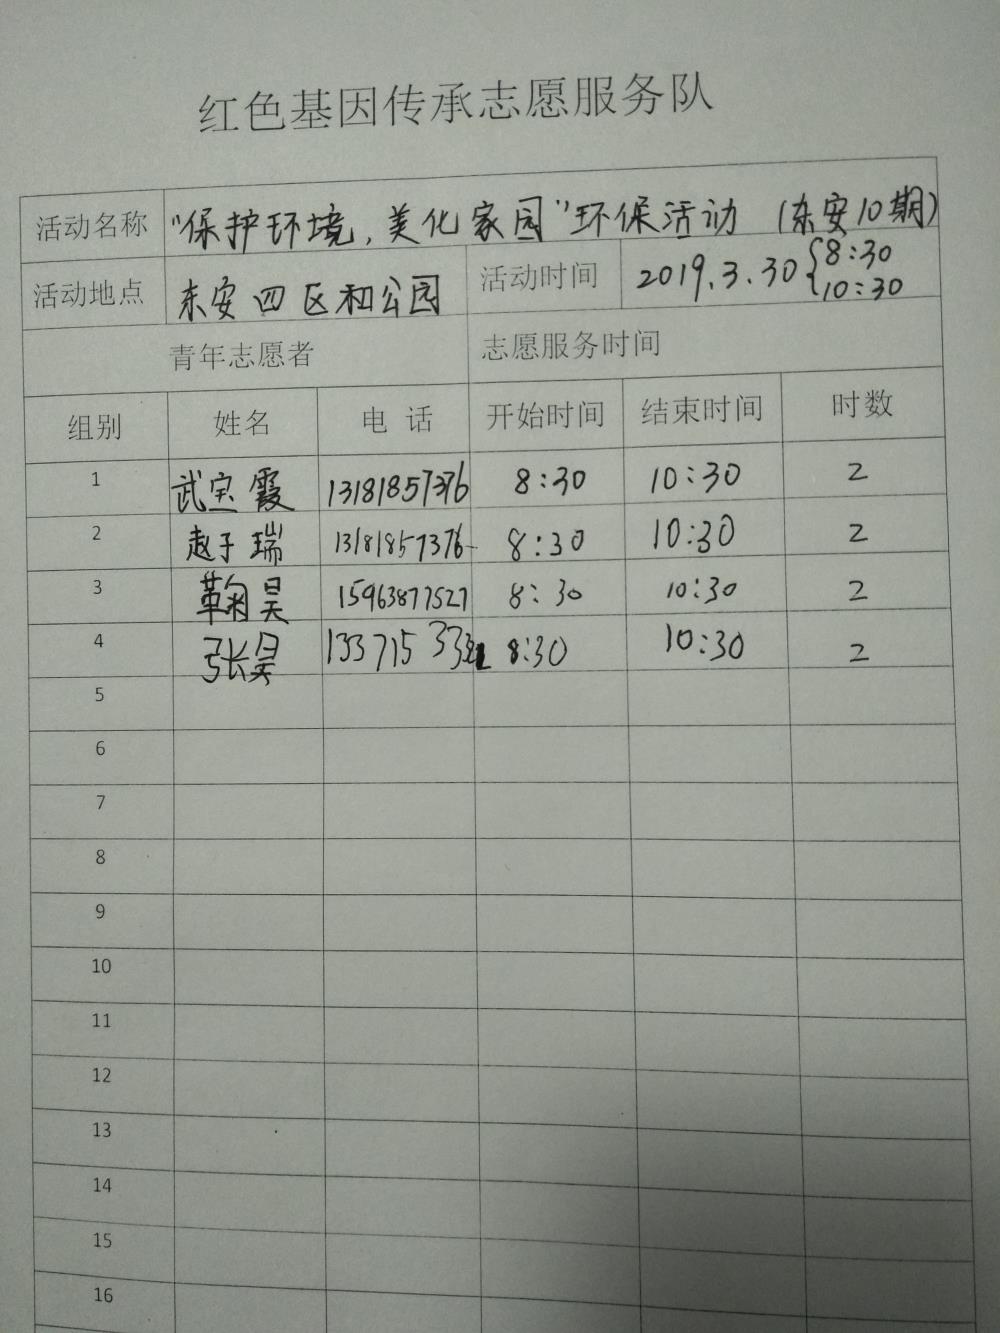 红色基因传承志愿服务队
活动名称 "保护环境，美化家园"环保活动 (东安10期)
活动地点 东安四区和公园 活动时间 2019.3.30 {8:30 10:30
青年志愿者 志愿服务时间
组别 姓名 电 话 开始时间 结束时间 时数
1 武宝霞 13181857376 8:30 10:30 2
2 赵子瑞 13181857376 8:30 10:30 2
3 鞠昊 15963877527 8:30 10:30 2
4 张昊 8:30 10:30 2
5
6
7
8
9
10
11
12
13
14
15
16